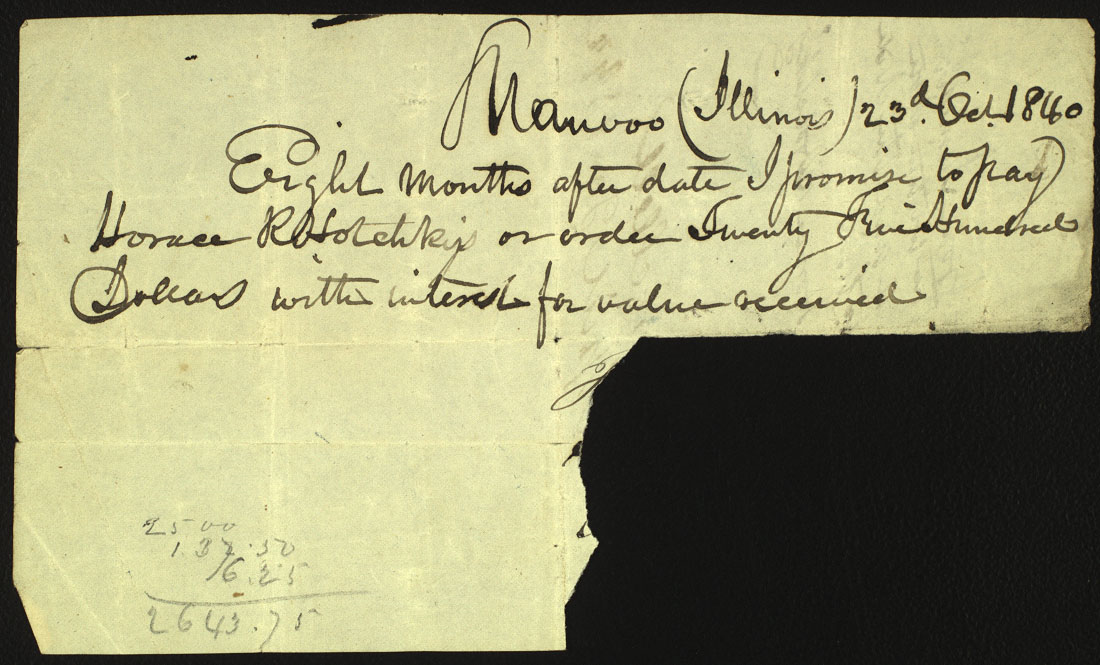 Nauvoo (Illinois) 23d. Oct. 1840
Eight months after date I promise to pay
Horace R Hotchkiss or order Twenty Five Hundred
Dollars with interest for value received
2500
137.50
6.25
2643.75